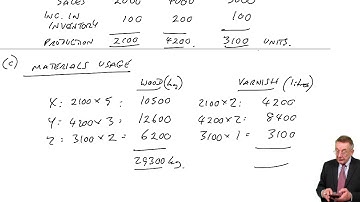 SALES 2000 4000 3000
INC. IN INVENTORY 100 200 100
PRODUCTION 2100 4200. 3100 UNITS.
(c) MATERIALS USAGE
WOOD (kg) VARNISH (litres)
X: 2100 × 5 : 10500 2100 × 2 : 4200
Y: 4200 × 3 : 12600 4200 × 2 : 8400
Z: 3100 × 2 = 6200 3100 × 1 = 3100
29300 kg.